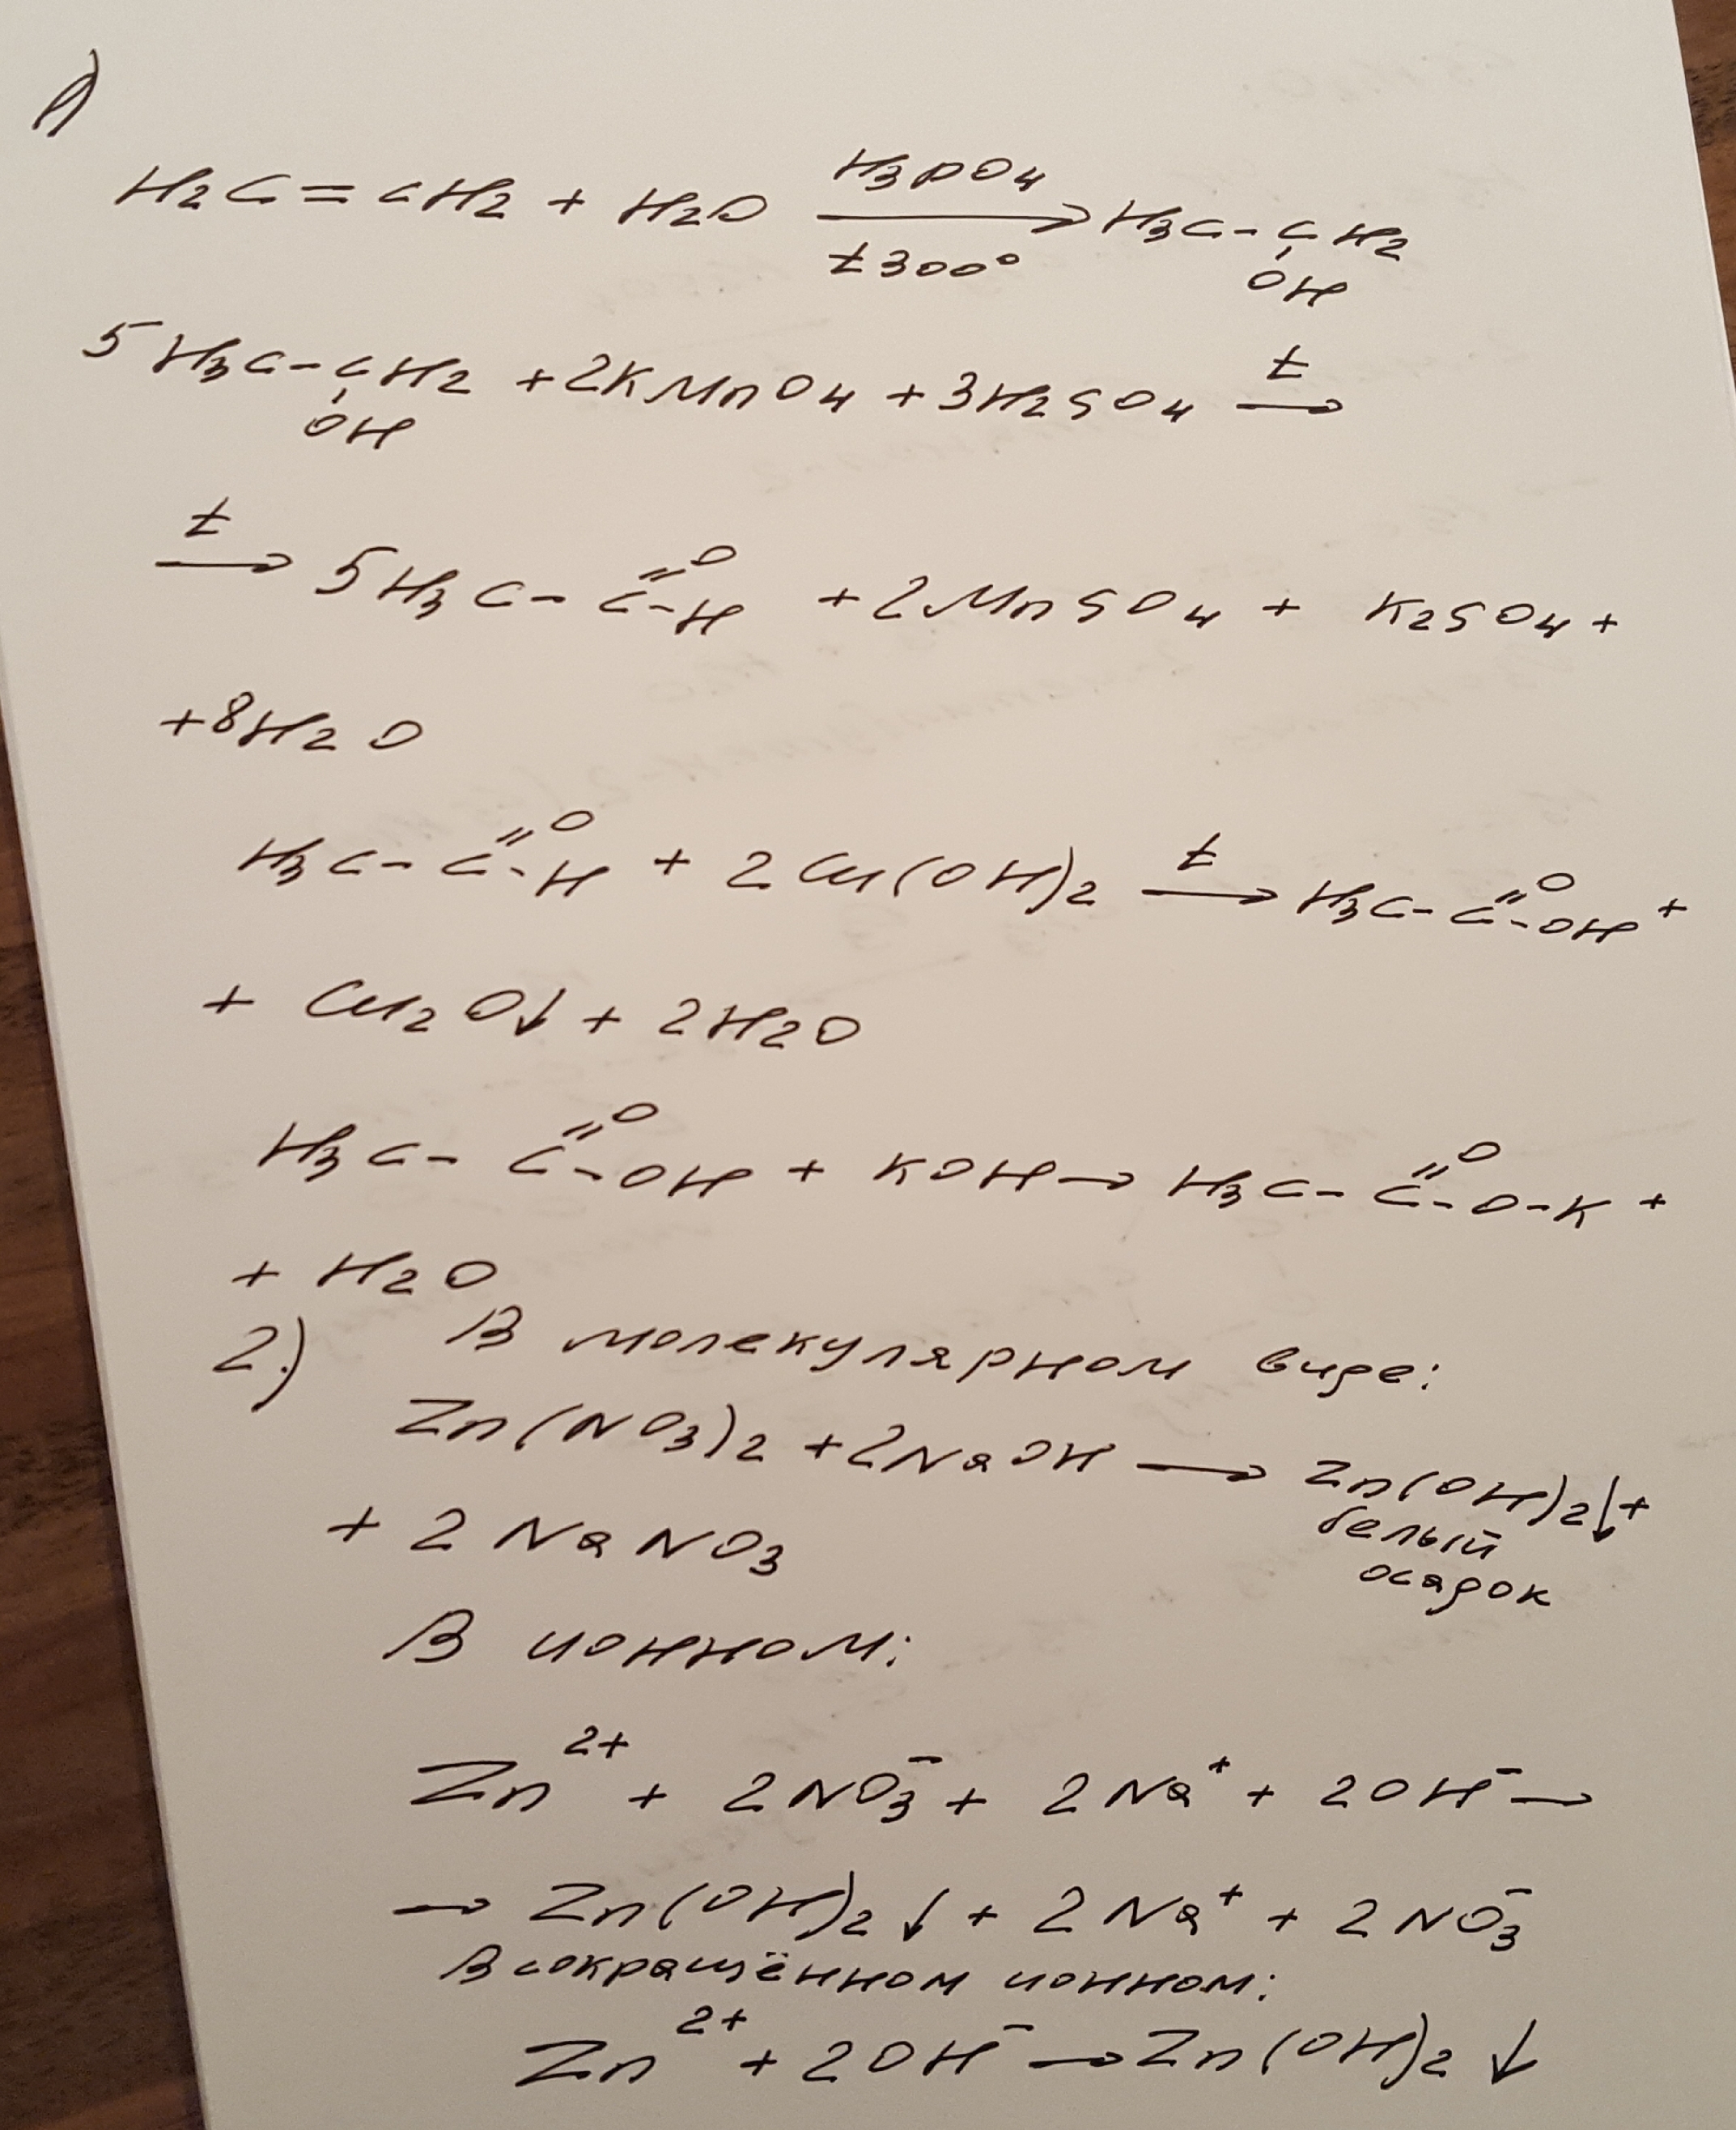 1)
H2C=CH2 + H2O
H3PO4
t300°
H3C-CH2
OH
5H3C-CH2 +2KMnO4 +3H2SO4 t →
OH
t → 5H3C-C=O-H +2MnSO4 + K2SO4 +
+8H2O
H3C-C=O-H + 2Cu(OH)2 t → H3C-C=O-OH +
+ Cu2O↓ + 2H2O
H3C-C=O-OH + KOH → H3C-C=O-O-K +
+ H2O
2.) В молекулярном виде:
Zn(NO3)2 +2NaOH → Zn(OH)2↓+
белый
осадок
+ 2NaNO3
В ионном:
Zn2+ + 2NO3- + 2Na+ + 2OH- →
→ Zn(OH)2↓ + 2Na+ + 2NO3-
В сокращённом ионном:
Zn2+ + 2OH- → Zn(OH)2↓